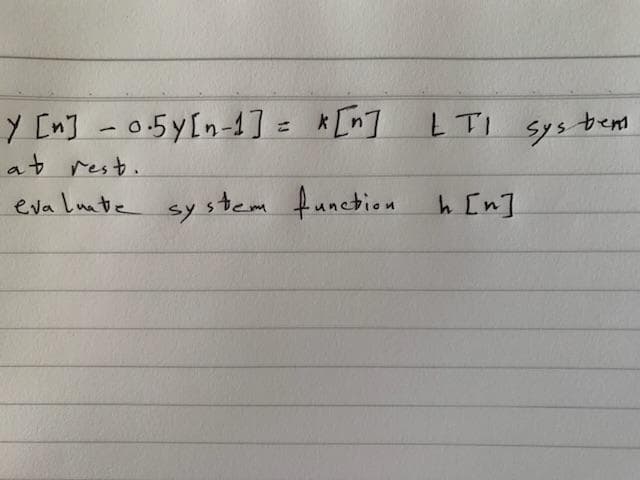 y[n] - 0.5y[n-1] = x[n] LTI system
at rest.
evaluate system function h[n]